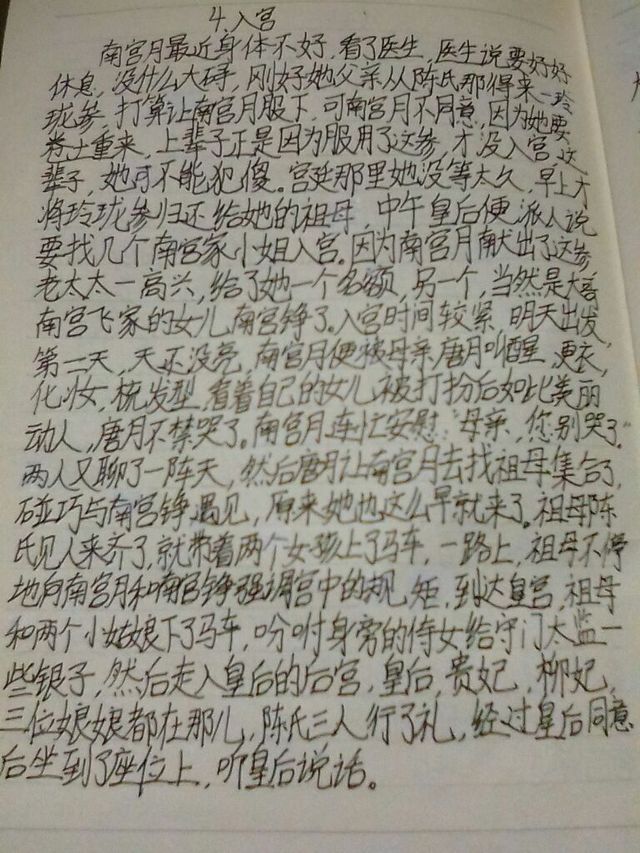 4.入宫
南宫月最近身体不好,看了医生,医生说要好好
休息,没什么大碍,刚好她父亲从陈氏那得来一玲
珑参,打算让南宫月服下,可南宫月不同意,因为她要
卷土重来,上辈子正是因为服用了这参,才没入宫,这
辈子,她可不能犯傻。宫廷那里她没等太久,早上才
将玲珑参归还给她的祖母,中午皇后便派人说
要找几个南宫家小姐入宫。因为南宫月献出了这参
老太太一高兴,给了她一个名额,另一个,当然是大善
南宫飞家的女儿南宫铮了。入宫时间较紧,明天出发,
第二天,天还没亮,南宫月便被母亲唐月叫醒,更衣,
化妆,梳发型,看着自己的女儿被打扮后如此美丽
动人,唐月不禁哭了。南宫月连忙安慰:母亲,您别哭了。
两人又聊了一阵天,然后唐月让南宫月去找祖母集合了,
碰巧与南宫铮遇见,原来她也这么早就来了。祖母陈
氏见人来齐了,就带着两个女孩上了马车,一路上,祖母不停
地向南宫月和南宫铮强调宫中的规矩,到达皇宫,祖母
和两个小姑娘下了马车,吩咐身旁的侍女给守门太监一
些银子,然后走入皇后的后宫,皇后,贵妃,柳妃,
三位娘娘都在那儿,陈氏三人行了礼,经过皇后同意
后坐到了座位上,听皇后说话。